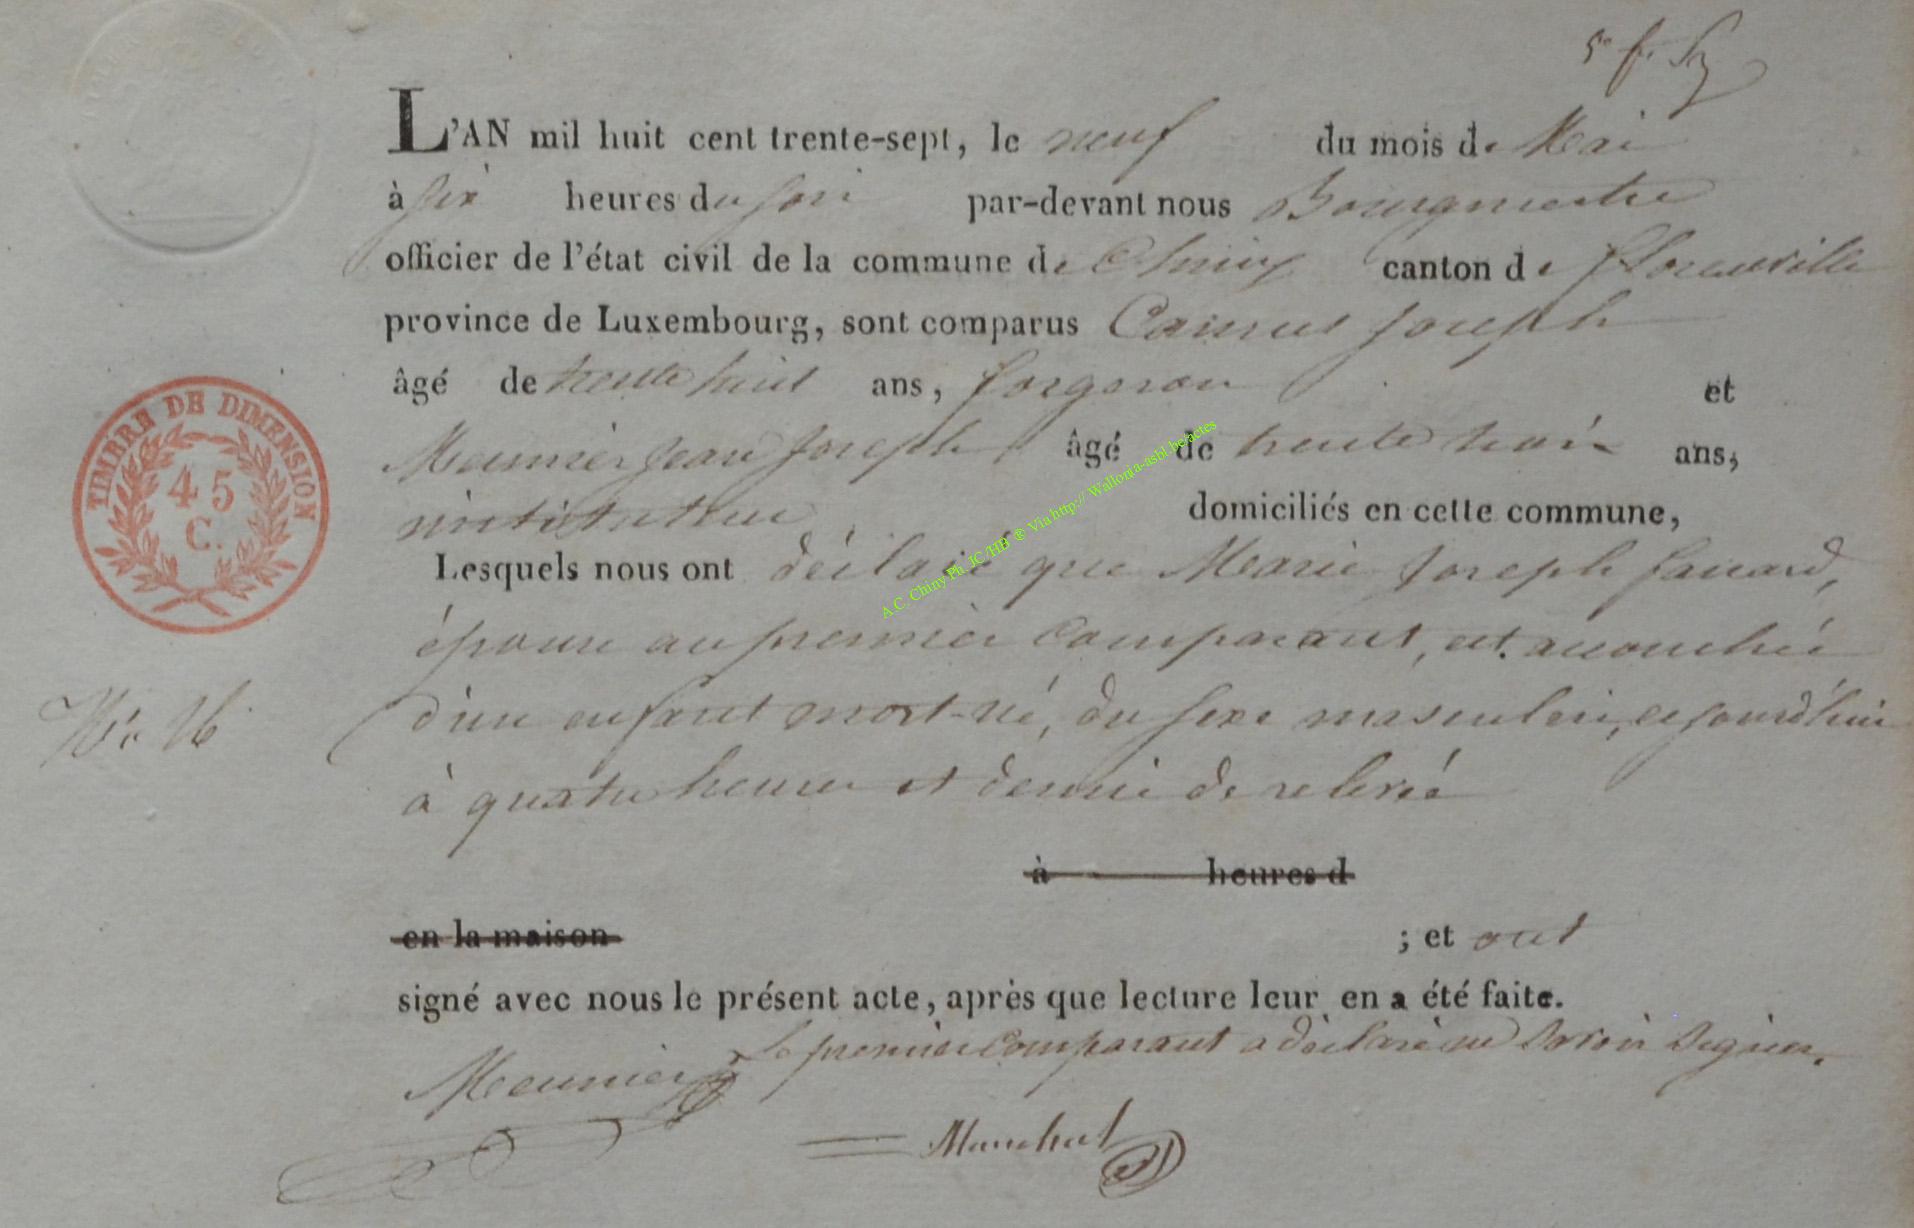 5e f. Sz
L'AN mil huit cent trente-sept, le neuf du mois de Mai
à six heures du soir par-devant nous Bourgmestre
officier de l'état civil de la commune de Chiny canton de florenville
province de Luxembourg, sont comparus Camus Joseph
âgé de trente huit ans, forgeron et
Meunier Jean Joseph âgé de trente trois ans,
instituteur domiciliés en cette commune,
Lesquels nous ont déclaré que Marie Joseph
épouse au premier comparant, est accouchée
d'un enfant mort-né, du sexe masculin, cejourd'hui
à quatre heures et demie de relevée
à heures d
en la maison ; et ont
signé avec nous le présent acte, après que lecture leur en a été faite.
Le premier comparant a déclaré ne savoir signer.
Meunier
TIMBRE DE DIMENSION
45
C.
A.C. Chiny Ph JC/HB ® Via http:// Wallonia-asbl.be/actes